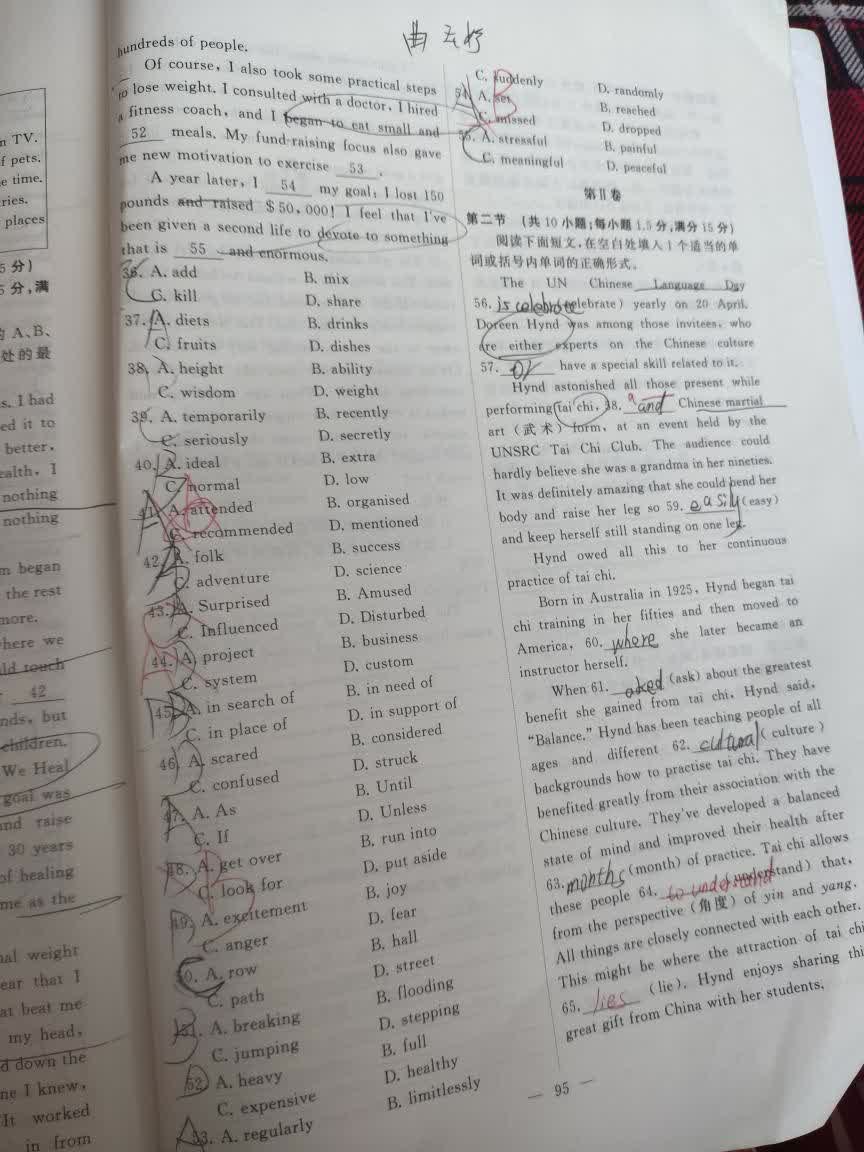 n TV.
f pets.
e time.
ries.
places
5 分)
5 分,满
的 A、B、
处的最
s. I had
ed it to
better,
ealth, I
nothing
nothing
m began
the rest
more.
here we
ld touch
42
nds, but
children.
We Heal
goal was
nd raise
30 years
of healing
me as the
al weight
ear that I
at beat me
my head,
d down the
ne I knew,
It worked
in from
hundreds of people.
Of course, I also took some practical steps
to lose weight. I consulted with a doctor, I hired
a fitness coach, and I began to eat small and
52 meals. My fund-raising focus also gave
me new motivation to exercise 53 .
A year later, I 54 my goal: I lost 150
pounds and raised $50,000! I feel that I've
been given a second life to devote to something
that is 55 and enormous.
36. A. add B. mix
C. kill D. share
37. A. diets B. drinks
C. fruits D. dishes
38. A. height B. ability
C. wisdom D. weight
39. A. temporarily B. recently
C. seriously D. secretly
40. A. ideal B. extra
C. normal D. low
41. A. attended B. organised
C. recommended D. mentioned
42. A. folk B. success
C. adventure D. science
43. A. Surprised B. Amused
C. Influenced D. Disturbed
44. A. project B. business
C. system D. custom
45. A. in search of B. in need of
C. in place of D. in support of
46. A. scared B. considered
C. confused D. struck
47. A. As B. Until
C. If D. Unless
48. A. get over B. run into
C. look for D. put aside
49. A. excitement B. joy
C. anger D. fear
50. A. row B. hall
C. path D. street
51. A. breaking B. flooding
C. jumping D. stepping
52. A. heavy B. full
C. expensive D. healthy
53. A. regularly B. limitlessly
C. suddenly D. randomly
54. A. set B. reached
C. missed D. dropped
55. A. stressful B. painful
C. meaningful D. peaceful
第Ⅱ卷
第二节 (共 10 小题;每小题 1.5 分,满分 15 分)
阅读下面短文,在空白处填入 1 个适当的单
词或括号内单词的正确形式。
The UN Chinese Language Day
56. is celebrate (celebrate) yearly on 20 April.
Doreen Hynd was among those invitees, who
are either experts on the Chinese culture
57. or have a special skill related to it.
Hynd astonished all those present while
performing tai chi, 58. a and Chinese martial
art (武术) form, at an event held by the
UNSRC Tai Chi Club. The audience could
hardly believe she was a grandma in her nineties.
It was definitely amazing that she could bend her
body and raise her leg so 59. easily (easy)
and keep herself still standing on one leg.
Hynd owed all this to her continuous
practice of tai chi.
Born in Australia in 1925, Hynd began tai
chi training in her fifties and then moved to
America, 60. where she later became an
instructor herself.
When 61. aked (ask) about the greatest
benefit she gained from tai chi, Hynd said,
"Balance." Hynd has been teaching people of all
ages and different 62. cultural (culture)
backgrounds how to practise tai chi. They have
benefited greatly from their association with the
Chinese culture. They've developed a balanced
state of mind and improved their health after
63. months (month) of practice. Tai chi allows
these people 64. to understand (understand) that,
from the perspective (角度) of yin and yang.
All things are closely connected with each other.
This might be where the attraction of tai chi
65. lies (lie). Hynd enjoys sharing thi
great gift from China with her students.
— 95 —